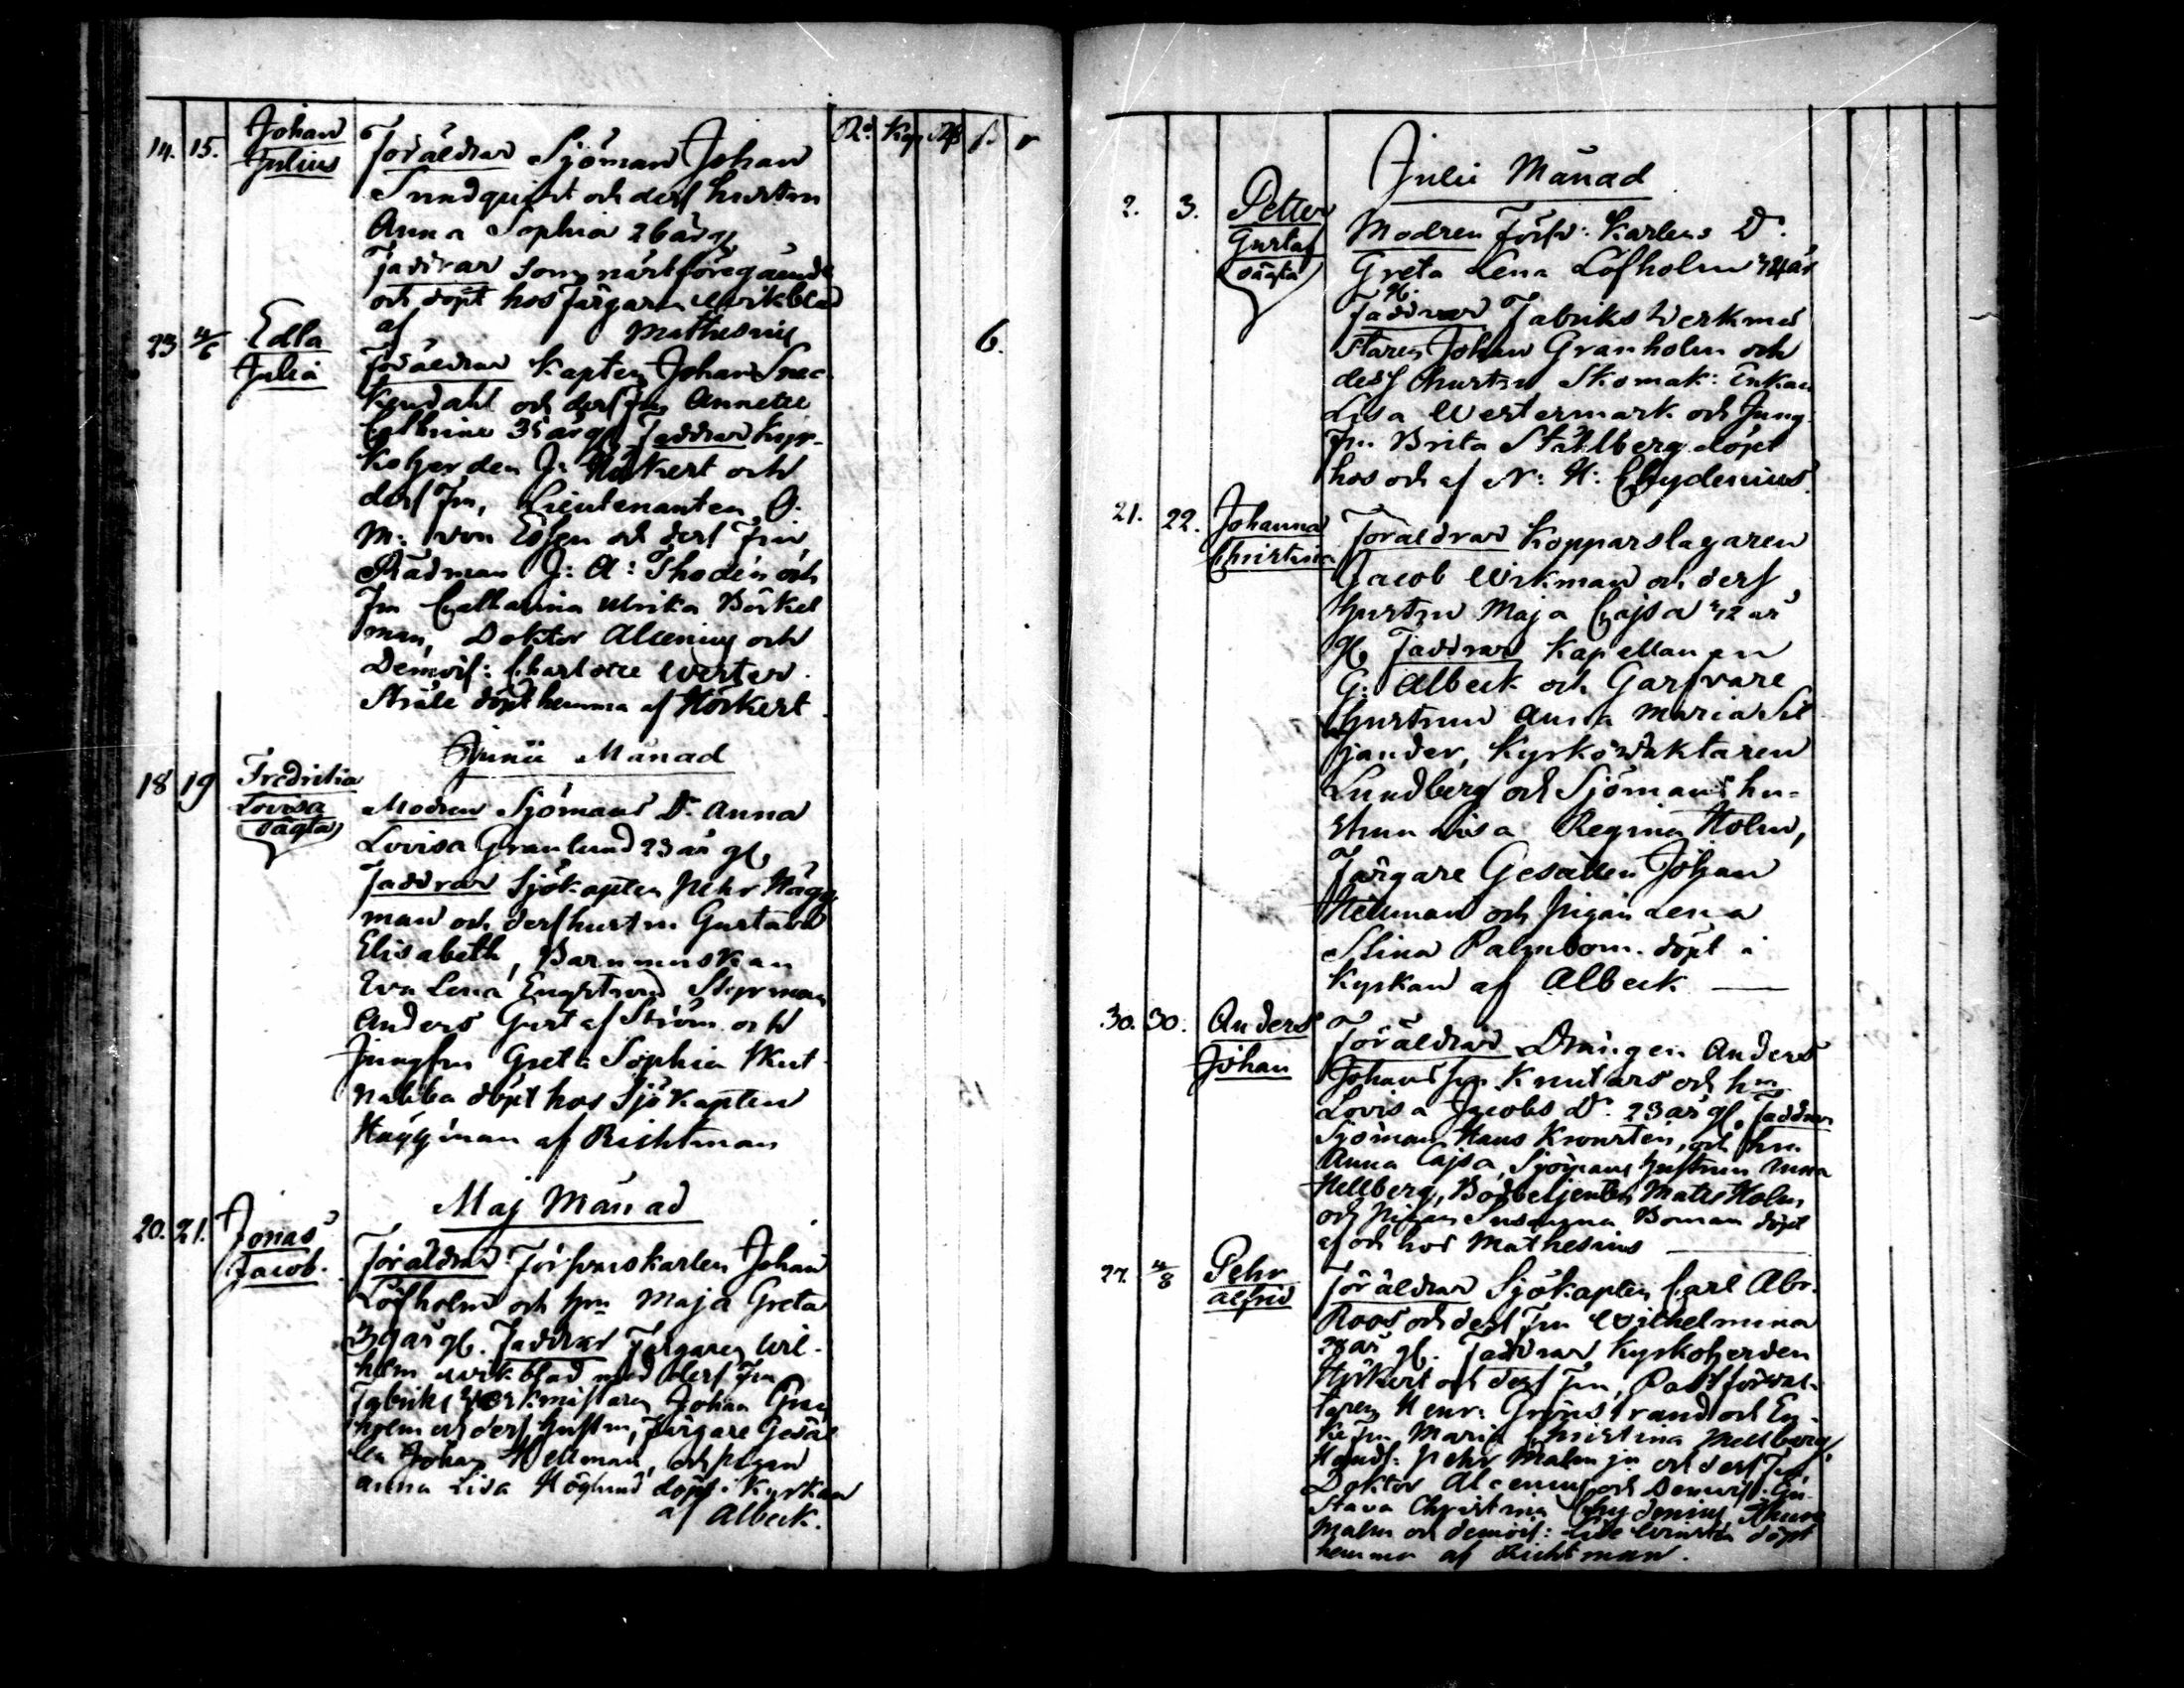 14. 15. Johan Julius
Föräldrar Sjöman Johan
Sundquist och dess hustru
Anna Sophia 26 år gl
Faddrar som närstföregående
och döpt hos Färgaren Wikblad
af Mathesius
23 4/6 Edla Julia 6.
Föräldrar Kapten Johan Snec-
kendahl och dess Fru Annette
Cathrine 35 år gl Faddrar Kyr-
koherden J: Hörkert och
dess Fru, Lieutenanten O.
M: von Essen och dess Fru
Rådman J: A: Thodén och
Fru Catharina Ulrika Börkel
man, Doktor Alcenius och
Demois: Charlotte Wester-
stråle döpt hemma af Hörkert
Junii Månad
18 19 Fredrika Lovisa oägta
Modren Sjömans Dr Anna
Lovisa Granlund 23 år gl
Faddrar Sjökapten Pehr Hägg
man och dess hustru Gustava
Elisabeth, Barnmorskan
Eva Lena Engstrand Styrman
Anders Gustaf Ström och
Jungfru Greta Sophia Skut-
nabba döpt hos Sjökapten
Häggman af Richtman
Maj Månad
20. 21. Jonas Jacob.
Föräldrar Försvarskarlen Johan
Löfholm och hru Maja Greta
39 år gl. Faddrar Färgaren Wil-
helm Wikblad med dess Fru
Fabriks Werkmästaren Johan Gran
holm och dess hustru, Färgare Gesäl
len Johan Hellman, och pigan
Anna Lisa Höglund döpt i Kyrkan
af Albeck.
Julii Månad
2. 3. Petter Gustaf oägta
Modren Försv: Karlens Dr
Greta Lena Löfholm 24 år
gl.
Faddrar Fabriks Werkmä
staren Johan Granholm och
dess hustru Skomak: Enkan
Lisa Westermark och Jung
fru Brita Stålberg döpt
hos och af N: H: Chydenius.
21. 22. Johanna Christina
Föräldrar Kopparslagaren
Jacob Wikman och dess
hustru Maja Cajsa 42 år
gl Faddrar Kapellanen
G: Albeck och Garfvare
hustrun Anna Maria Sil
jander, Kyrkowäktaren
Lundberg och Sjömans hu-
strun Lisa Regina Holm,
Färgare Gesällen Johan
Hellman och pigan Lena
Stina Palmbom. döpt i
Kyrkan af Albeck
30. 30. Anders Johan
Föräldrar Drängen Anders
Johansson Knutars och hru
Lovisa Jacobs Dr. 23 år gl. Faddrar
Sjöman Hans Kronsten, och hru
Anna Cajsa, Sjömans hustrun Anna
Hellberg, Bodbetjenten Mats Holm
och pigan Susanna Boman döpt
af och hos Mathesius
27. 4/8 Pehr Alfrid
Föräldrar Sjökapten Carl Abr.
Roos och dess Fru Wilhelmina
år gl. Faddrar Kyrkoherden
Hörkert och dess Fru, Postförval-
taren Henr: Grönstrand och En-
ke Fru Maria Christina Mellberg
Handl: Pehr Malm jr och dess Fru,
Doktor Alcenius och Demois: Gu-
stava Christina Chydenius,
Malm och Demois: döpt
hemma af Richtman.